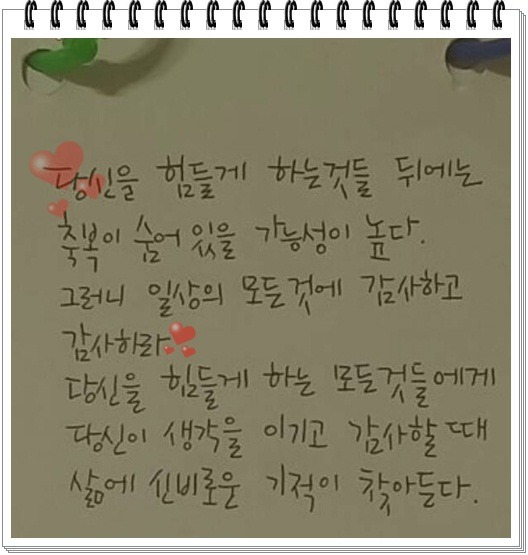 당신을 힘들게 하는것들 뒤에는
축복이 숨어 있을 가능성이 높다.
그러니 일상의 모든것에 감사하고
감사하라
당신을 힘들게 하는 모든것들에게
당신이 생각을 이기고 감사할때
삶에 신비로운 기적이 찾아든다.